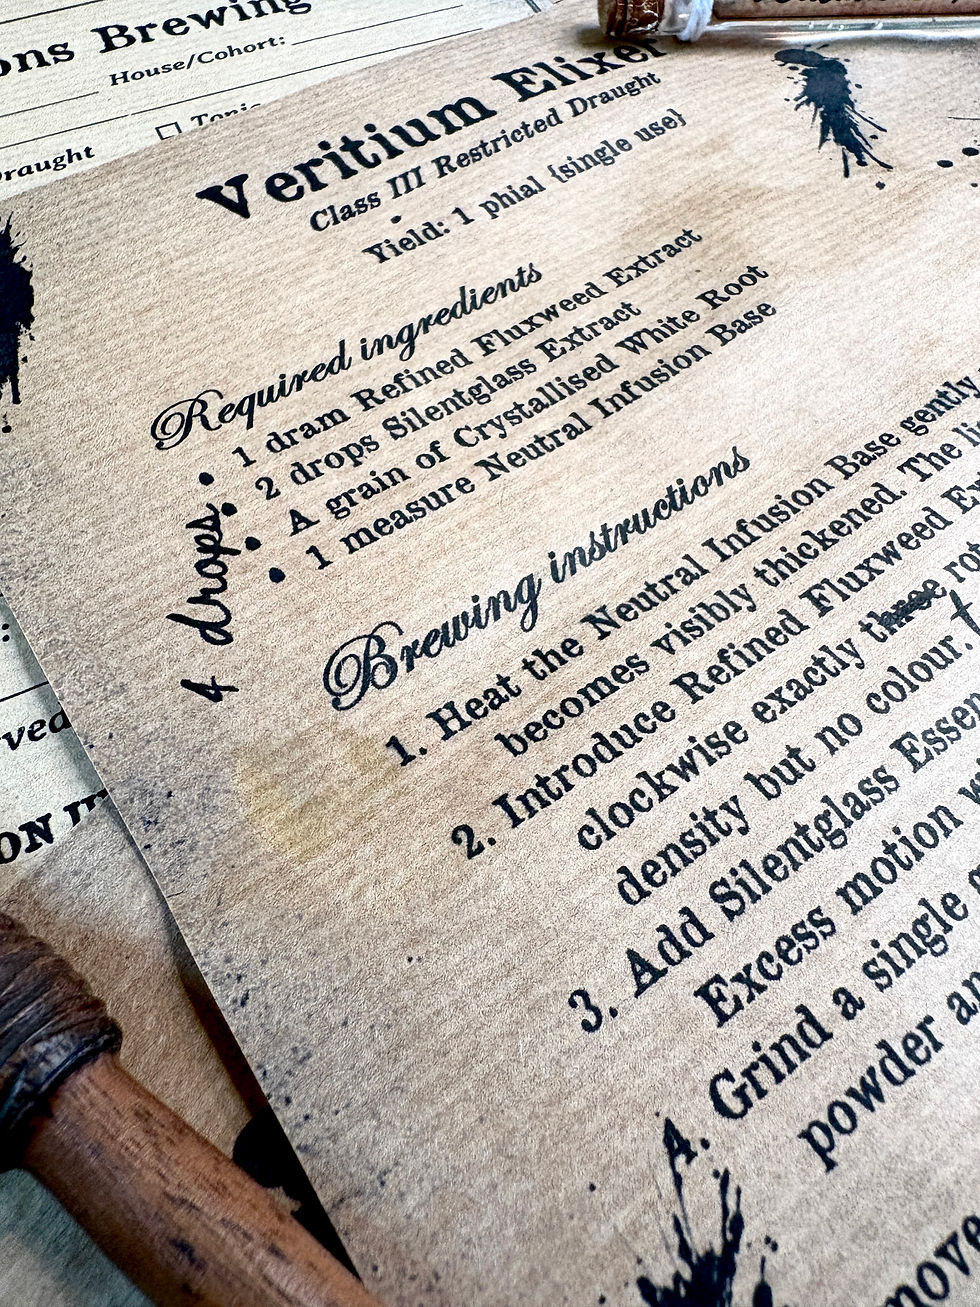 ons Brewing
House/Cohort:
☐ Tonic
raught
Veritium Elixer
Class III Restricted Draught
Yield: 1 phial {single use}
Required ingredients
• 1 dram Refined Fluxweed Extract
• 2 drops Silentglass Extract
• A grain of Crystallised White Root
• 1 measure Neutral Infusion Base
4 drops
Brewing instructions
1. Heat the Neutral Infusion Base gently
becomes visibly thickened. The li
2. Introduce Refined Fluxweed Ex
clockwise exactly three rot
density but no colour.
3. Add Silentglass Essen
Excess motion w
4. Grind a single g
powder an
move
:
rved
ON I